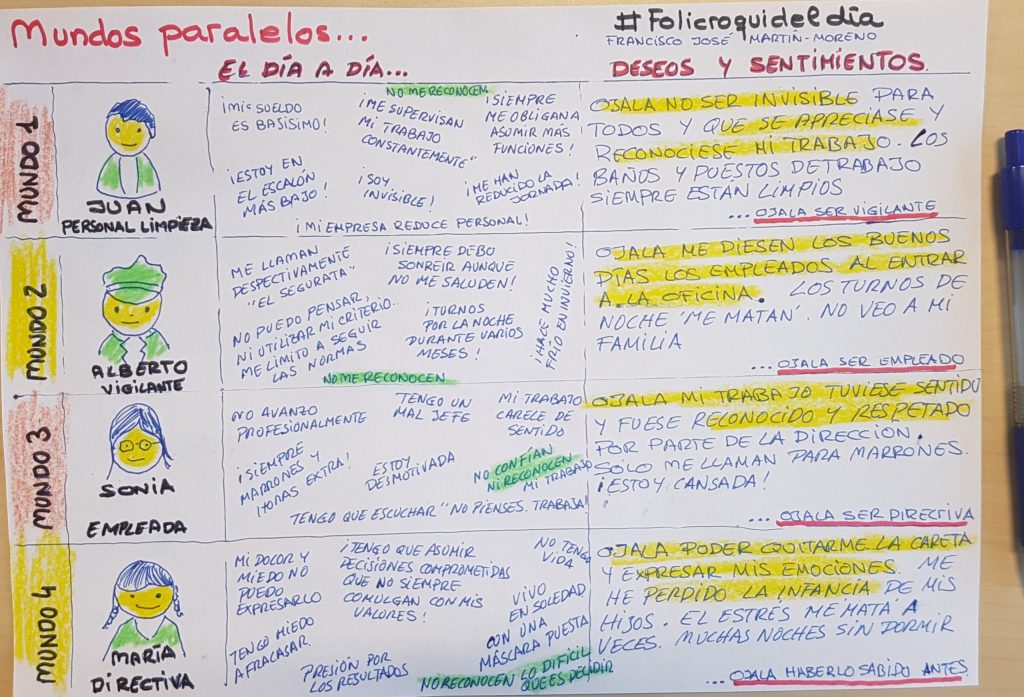 Mundos paralelos...
#Folicroquideldía
FRANCISCO JOSÉ MARTIÑ-MORENO
EL DÍA A DÍA...
DESEOS Y SENTIMIENTOS
MUNDO 1
JUAN
PERSONAL LIMPIEZA
NO ME RECONOCEN
¡MIS SUELDO
ES BASISIMO!
¡ME SUPERVISAN
MI TRABAJO
CONSTANTEMENTE"
¡SIEMPRE
ME OBLIGAN A
ASUMIR MÁS
FUNCIONES!
¡ESTOY EN
EL ESCALÓN
MÁS BAJO!
¡SOY
INVISIBLE!
¡ME HAN
REDUCIDO LA
JORNADA!
¡MI EMPRESA REDUCE PERSONAL!
OJALA NO SER INVISIBLE PARA
TODOS Y QUE SE APRECIASE Y
RECONOCIESE MI TRABAJO. LOS
BAÑOS Y PUESTOS DETRABAJO
SIEMPRE ESTAN LIMPIOS
...OJALA SER VIGILANTE
MUNDO 2
ALBERTO
VIGILANTE
ME LLAMAN
DESPECTIVAMENTE
"EL SEGURATA"
¡SIEMPRE DEBO
SONREIR AUNQUE
NO ME SALUDEN!
NO PUEDO PENSAR,
NI UTILIZAR MI CRITERIO..
ME LIMITO A SEGUIR
LAS NORMAS
¡TURNOS
POR LA NOCHE
DURANTE VARIOS
MESES!
¡HACE MUCHO
FRÍO EN INVIERNO!
NO ME RECONOCEN
OJALA ME DIESEN LOS BUENOS
DÍAS LOS EMPLEADOS AL ENTRAR
A LA OFICINA. LOS TURNOS DE
NOCHE 'ME MATAN'. NO VEO A MI
FAMILIA
...OJALA SER EMPLEADO
MUNDO 3
SONIA
EMPLEADA
NO AVANZO
PROFESIONALMENTE
TENGO UN
MAL JEFE
MI TRABAJO
CARELE DE
SENTIDO
¡SIEMPRE
MARRONES Y
HORAS EXTRA!
ESTOY
DESMOTIVADA
NO CONFIAN
NI RECONOCEN
MI TRABAJO
TENGO QUE ESCUCHAR "NO PIENSES. TRABAJA!
OJALA MI TRABAJO TUVIESE SENTIDO
Y FUESE RECONOCIDO Y RESPETADO
POR PARTE DE LA DIRECCIÓN.
SÓLO ME LLAMAN PARA MARRONES.
¡ESTOY CANSADA!
... OJALA SER DIRECTIVA
MUNDO 4
MARÍA
DIRECTIVA
MI DOLOR Y
MIEDO NO
PUEDO
EXPRESARLO
¡TENGO QUE ASUMIR
DECISIÓNES COMPROMETIDAS
QUE NO SIEMPRE
COMULGAN CON MIS
VALORES!
NO TENGO
VIDA
TENGO MIEDO
A FRACASAR.
PRESIÓN POR
LOS RESULTADOS
VIVO
EN SOLEDAD
CON UNA
MÁSCARA PUESTA
NO RECONOCEN LO DIFICIL
QUE ES DECIDIR
OJALA PODER QUITARME LA CARETA
Y EXPRESAR MIS EMOCIONES. ME
HE PERDIDO LA INFANCIA DE MIS
HIJOS. EL ESTRÉS ME MATA A
VECES. MUCHAS NOCHES SIN DORMIR
...OJALA HABERLO SABIDO ANTES.